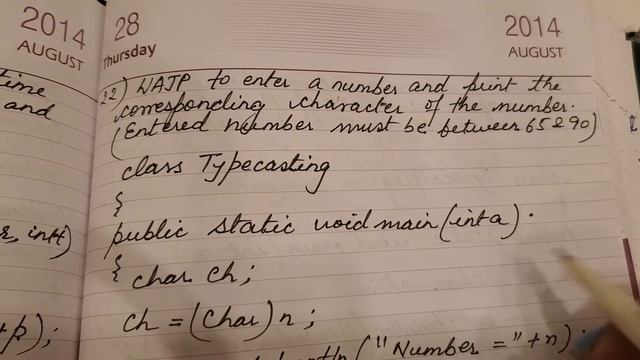 2014
AUGUST
28
Thursday
2014
AUGUST
time
and
r, int i)
+p);
22) WAJP to enter a number and print the
corresponding character of the number.
(Entered number must be between 65 & 90)
class Typecasting
{
public static void main (int a)
{ char ch;
ch = (char) n;
("Number =" + n);